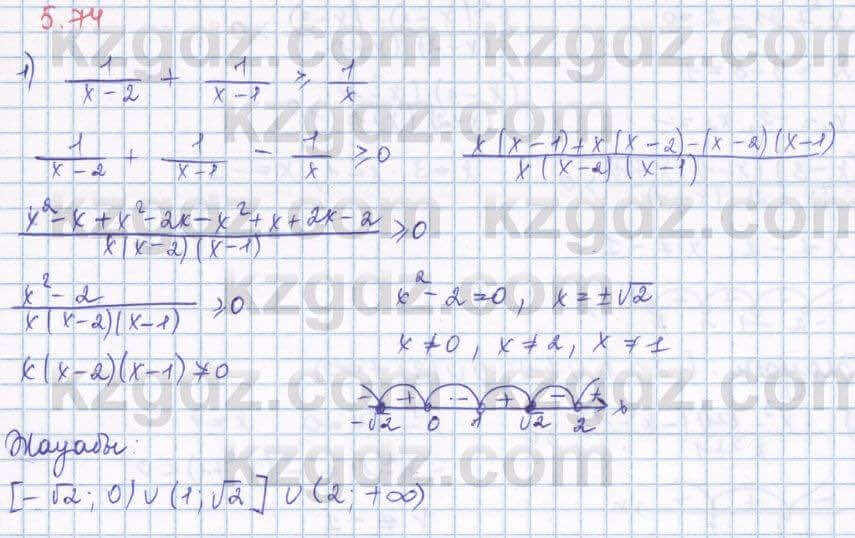 5.74
1) 1/(x-2) + 1/(x-1) ≥ 1/x
1/(x-2) + 1/(x-1) - 1/x ≥ 0    (x(x-1)+x(x-2)-(x-2)(x-1))/(x(x-2)(x-1))
(x²-x+x²-2x-x²+x+2x-2)/(x(x-2)(x-1)) ≥ 0
(x²-2)/(x(x-2)(x-1)) ≥ 0    x²-2=0, x=±√2
x≠0, x≠2, x≠1
x(x-2)(x-1)≠0
- + - + - +
-√2 0 1 √2 2 x
Жауабы:
[-√2; 0) ∪ (1; √2] ∪ (2; +∞)
kzgdz.com kzgdz.com
kzgdz.com
kzgdz.com kzgdz.com
kzgdz.com
kzgdz.com kzgdz.com
kzgdz.com